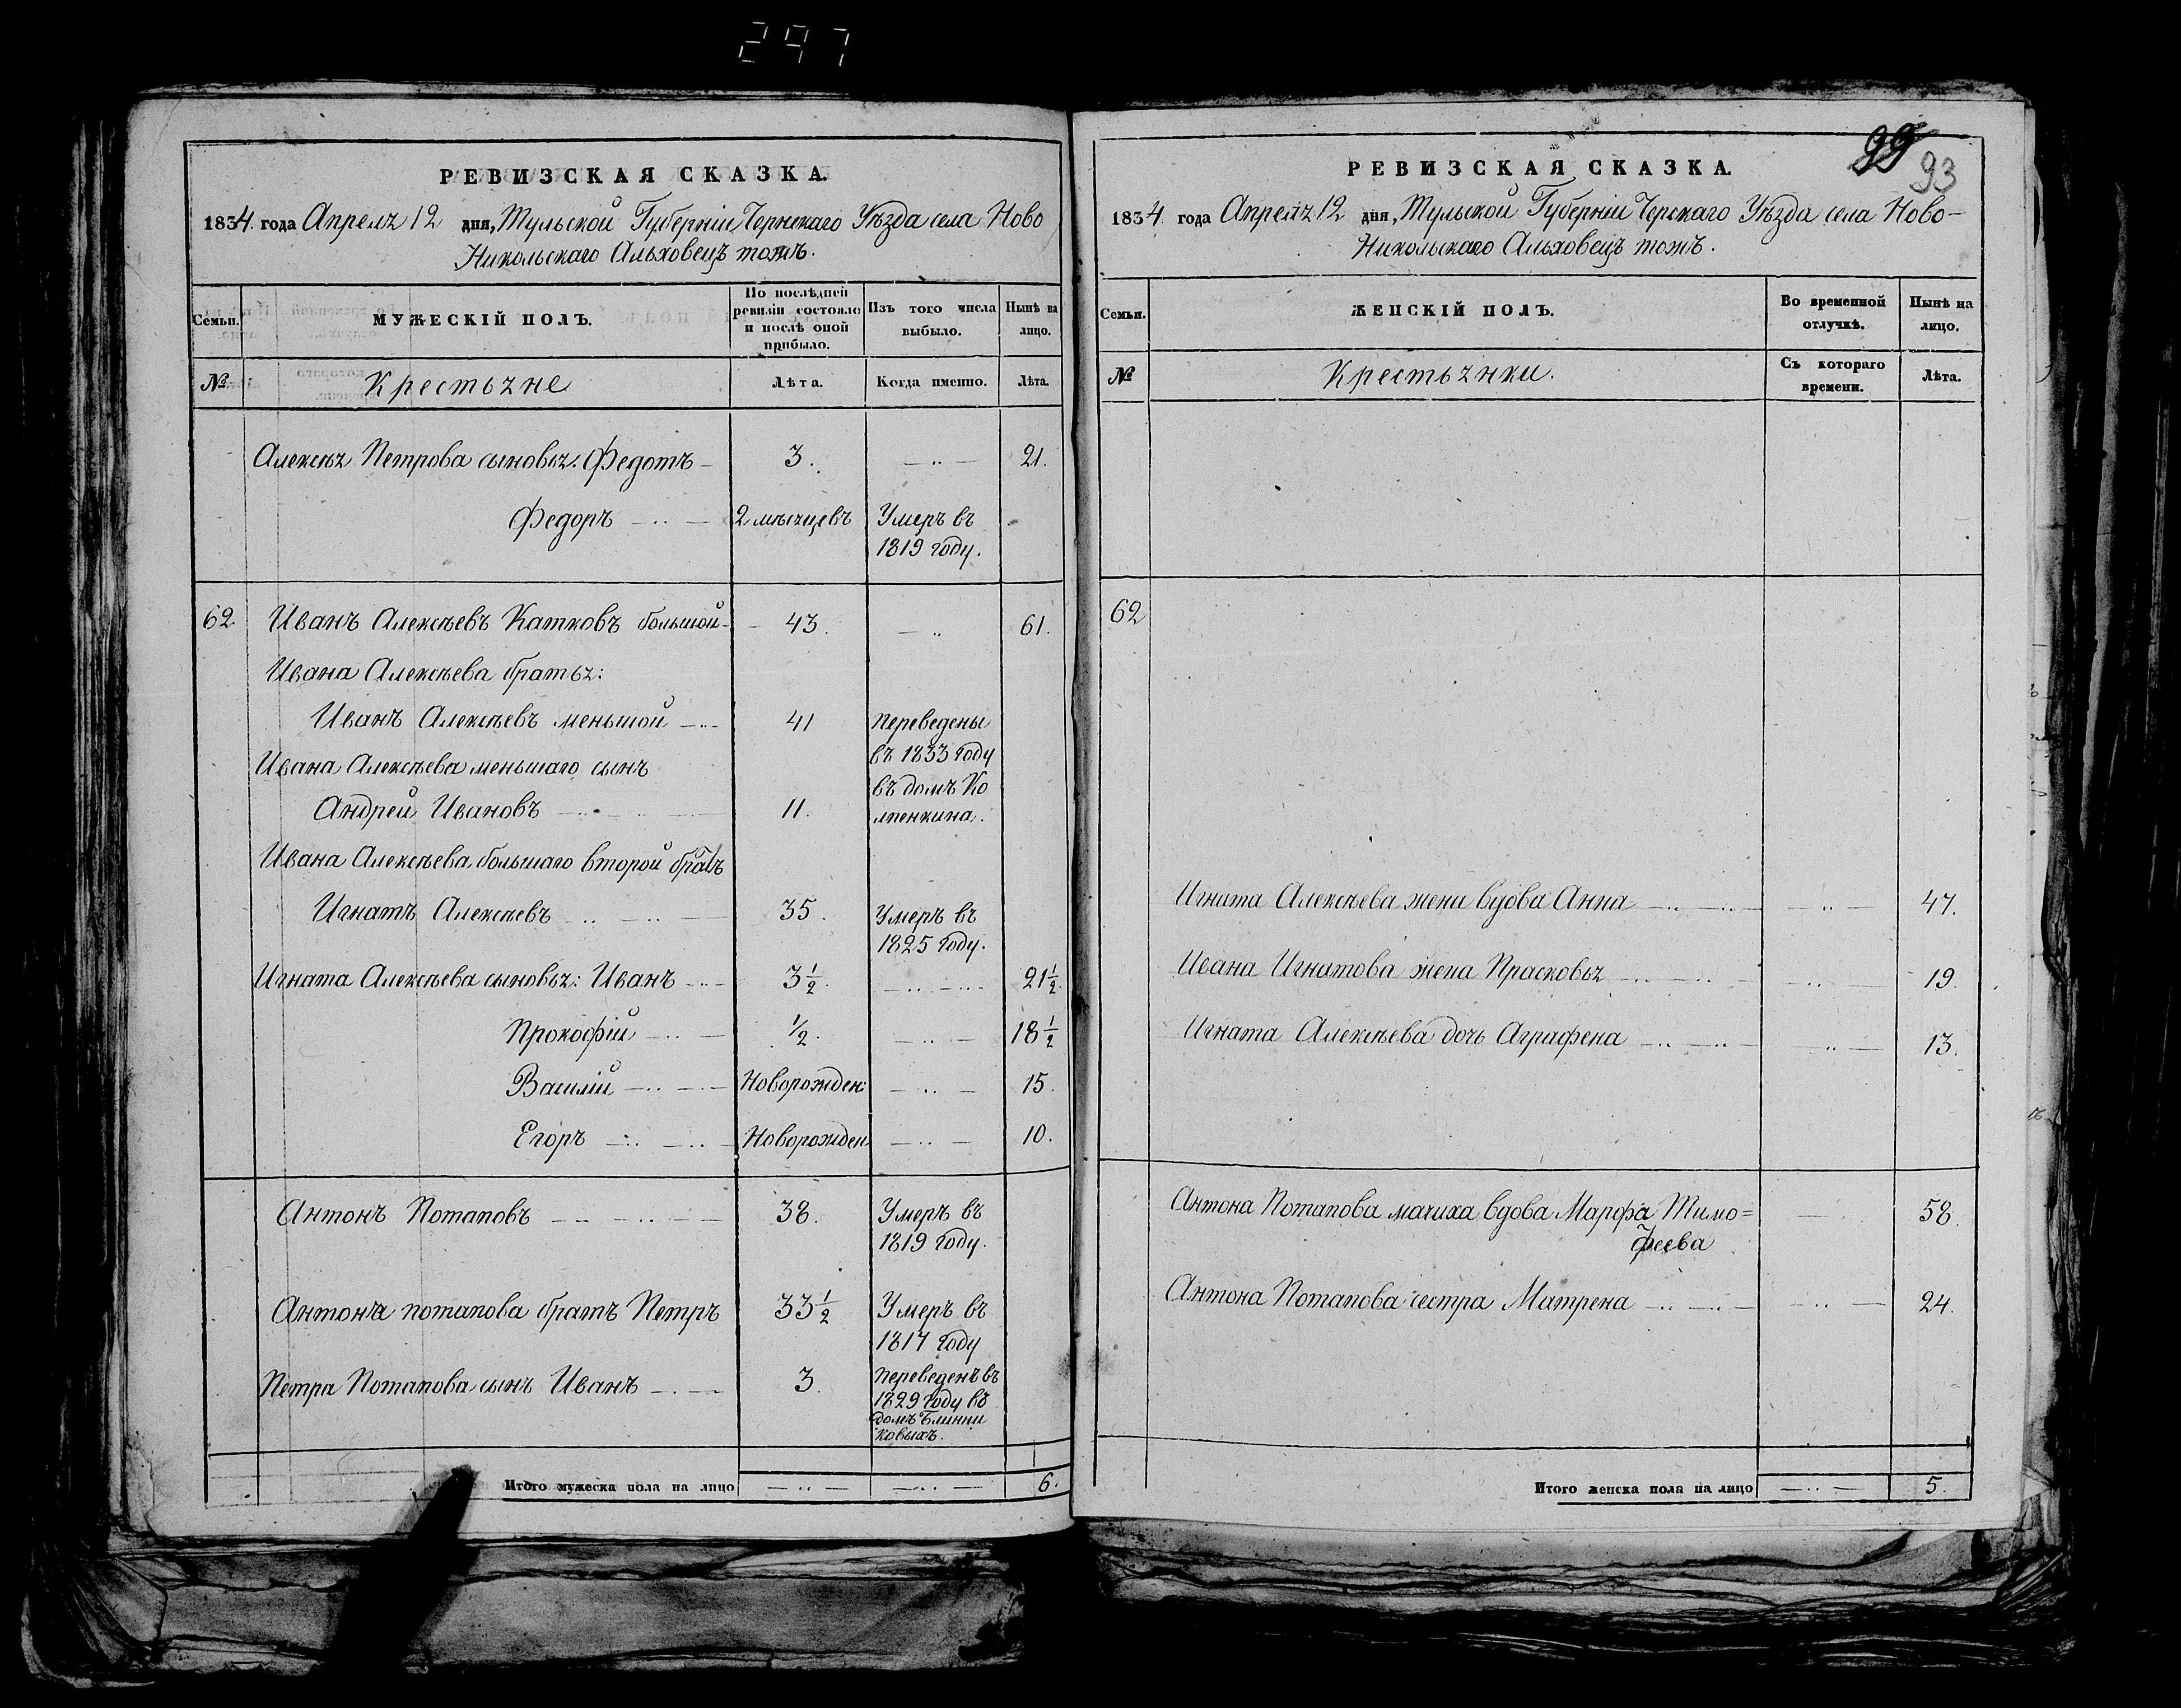 297
РЕВИЗСКАЯ СКАЗКА.
1834. года Апреля 12 дня, Тульской Губерніи Чернскаго Уѣзда села Ново
Никольскаго Альховецъ тожъ.
Семьи.
МУЖЕСКІЙ ПОЛЪ.
По послѣдней ревизіи состояло и послѣ оной прибыло.
Изъ того числа выбыло.
Нынѣ на лицо.
№
Крестьяне
Лѣта.
Когда именно.
Лѣта.
Алексѣя Петрова сыновья: Федотъ 3. 21.
Федоръ 2 мѣсяцевъ Умеръ въ
1819 году.
62 Иванъ Алексѣевъ Катковъ большой 43. 61.
Ивана Алексѣева братья:
Иванъ Алексѣевъ меньшой 41 переведены
въ 1833 году
Ивана Алексѣева меньшаго сынъ
въ домъ Ко
Андрей Ивановъ 11. лпенкина.
Ивана Алексѣева большаго второй братъ
Игнатъ Алексѣевъ 35. Умеръ въ
1825 году.
Игната Алексѣева сыновья: Иванъ 3 1/2. 21 1/2.
Прокофій 1/2. 18 1/2
Василій Новорожден: 15.
Егоръ Новорожден 10.
Антонъ Потаповъ 38. Умеръ въ
1819 году.
Антона потапова братъ Петръ 33 1/2 Умеръ въ
1817 году
Петра Потапова сынъ Иванъ 3. переведенъ въ
1829 году въ
домъ Блинни
ковыхъ.
Итого мужеска пола на лицо 6.
99 93
РЕВИЗСКАЯ СКАЗКА.
1834 года Апреля 12 дня, Тульской Губерніи Черскаго Уѣзда села Ново-
Никольскаго Альховецъ тожъ.
Семьи.
ЖЕНСКІЙ ПОЛЪ.
Во временной отлучкѣ.
Нынѣ на лицо.
№
Крестьянки.
Съ котораго времени.
Лѣта.
62
Игната Алексѣева жена вдова Анна 47.
Ивана Игнатова жена Прасковья 19.
Игната Алексѣева дочь Аграфена 13.
Антона Потапова мачиха вдова Марфа Тимо= 58.
феева
Антона Потапова сестра Матрена 24.
Итого женска пола на лицо 5.